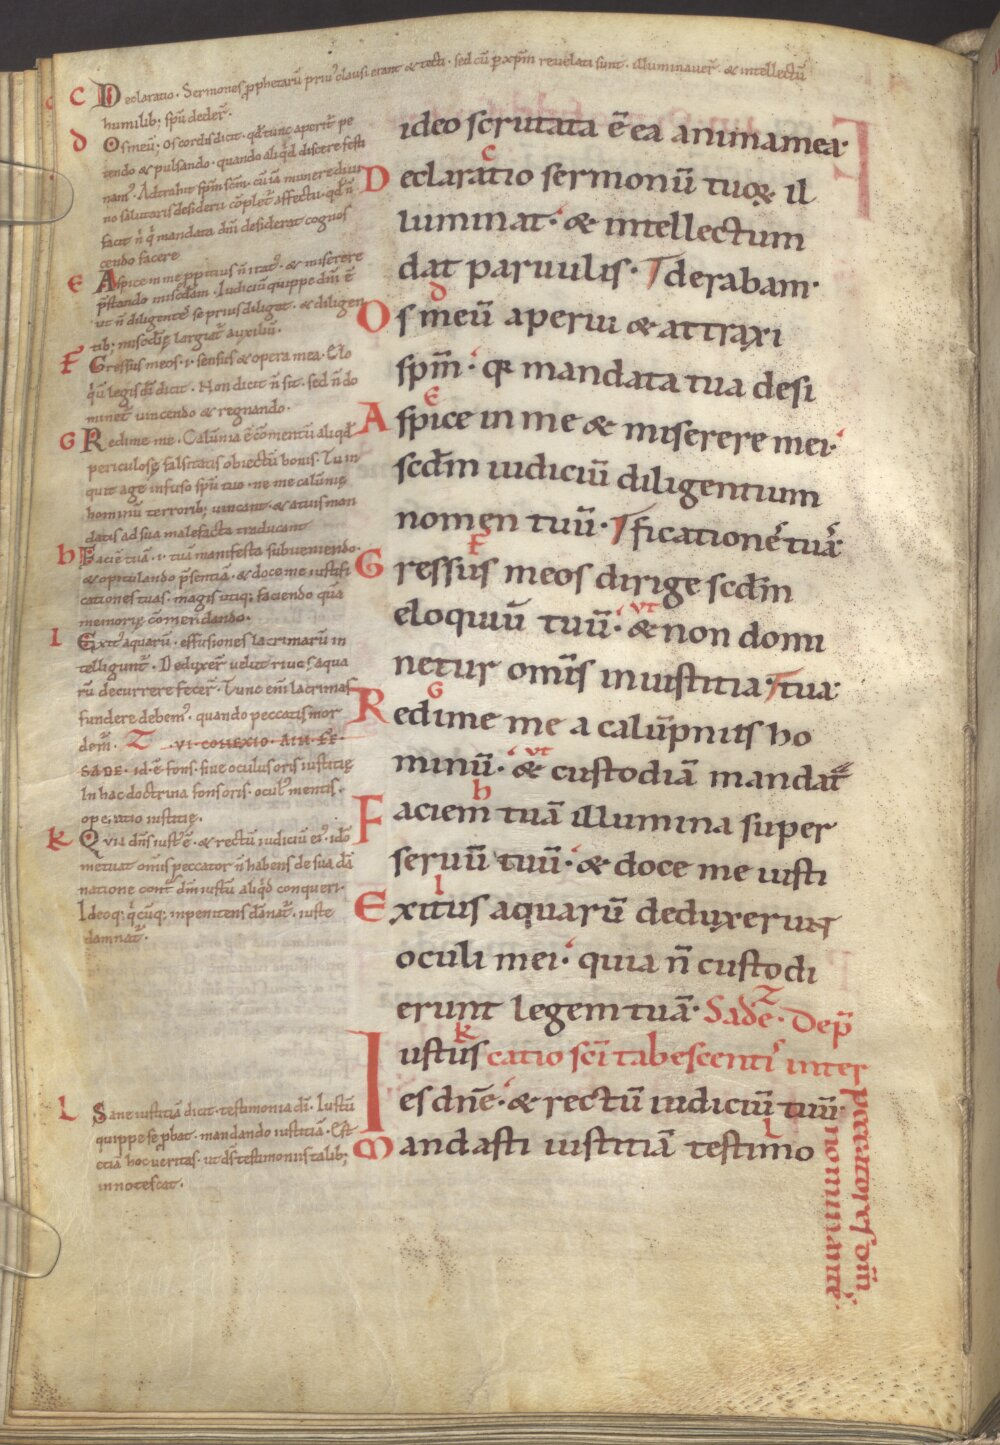 C Declaratio. Sermones ꝓphetarũ priꝰ clausi erant & tecti. sed cũ ꝑ xp̃m reuelati sunt. illuminauer̃. & intellectũ
humilib; spũ deder̃.
d Os meũ; os cordis dicit. qđ tunc aperit̃ pe
tendo & pulsando. quando aliqđ discere festi
nam̃. Adtrahit sp̃m sc̃m. cũ iã munere diui
no salutaris desiderii cõplet̃ affectu. qđ ñ
facit ñ q̾ mandata dñi desiderat cognos
cendo facere
E Aspice in me ꝓpitius ñ iratꝰ. & miserere
p̃stando misc̃dam. Iudiciũ quippe dñi ẽ
ut ñ diligentes se prius diligat. & diligen
tib; misc̃die largiat̃ auxiliũ.
F Gressus meos .i. sensus & opera mea. Elo
quiũ legis dĩ dicit. Non dicit ñ sit. sed ñ do
minet̃ uincendo & regnando.
G Redime me. Calũnia ẽ cõmentũ aliqđ
periculosę falsitatis obiectũ bonis. Tu in
quit age infuso spũ tuo. ne me calũnię
hominũ terrorib; uincant. & a tuis man
datis ad sua malefacta traducant
h Faciẽ tuã .i. tuã manifesta subueniendo
& opitulando p̃sentiã. & doce me iustifi
cationes tuas. magis utiq; faciendo quã
memorię cõmendando.
I Exitꝰ aquarũ. effusiones lacrimarũ in
telligunt̃. Deduxer̃ uelut riuos aqua
rũ decurrere fecer̃. Tunc em̃ lacrimas
fundere debemꝰ. quando peccatis mor
dem̃. Z .VI. CONEXIO. AIN. FE.
SADE. id ẽ fons. siue oculus oris iustitię
In hac doctrina fons oris. oculꝰ mentis.
operatio iustitię.
K Quia dñs iustꝰ ẽ. & rectũ iudiciũ eiꝰ. idõ
metuat om̃is peccator ñ habens de sua dã
natione cont̃ dm̃ iustũ aliqđ conqueri.
Ideoq; q̾cũq; inpenitens dãnat̃. iuste
damnat̃.
L Sane iustitiã dicit. testimonia dĩ. Iustũ
quippe se ꝓbat. mandando iustitiã. Est
etiã hoc ueritas. ut ds̃ testimoniis talib;
innotescat.
ideo scrutata ẽ ea anima mea.
c
Declaratio sermonũ tuoꝝ il
luminat. & intellectum
dat paruulis. Tderabam.
d
Os meũ aperui & attraxi
sp̃m. qꝛ mandata tua desi
E
Aspice in me & miserere mei.
scđm iudiciũ diligentium
nomen tuũ. Tficationeˢ tuaˢ
F
Gressus meos dirige scđm
eloquiũ tuũ. ut & non domi
netur om̃is iniustitia. Ttua.
G
Redime me a calũpniis ho
minũ. ut & custodiã mandat̃
h
Faciem tuã illumina super
seruũ tuũ. & doce me iusti
I
Exitus aquarũ deduxerunt
oculi mei. quia ñ custodi
erunt legem tuã. Sade. Z Dep̃
k
Iustus catio sc̃i tabescentiˢ inter
es dñe. & rectũ iudiciũ tuũ.
L
Mandasti iustitiã testimo
peccatores om̃iˢ
nominante.